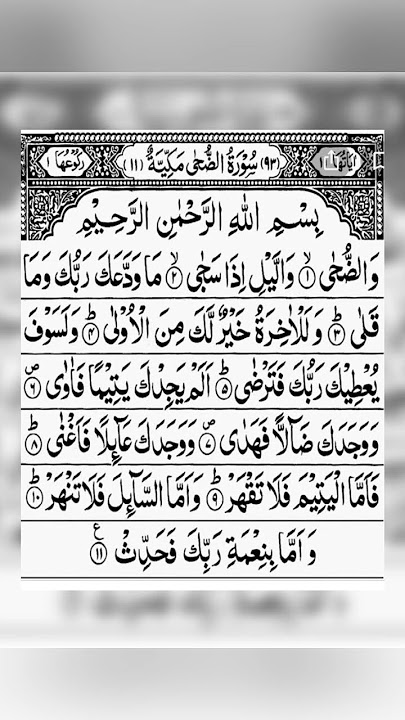 اٰيَاتُهَا ١١ (٩٣) سُوْرَةُ الضُّحٰى مَكِّيَّةٌ (١١) رُكُوْعُهَا ١
بِسْمِ اللّٰهِ الرَّحْمٰنِ الرَّحِيْمِ
وَالضُّحٰى ۙ‏﴿۱﴾ وَالَّيْلِ اِذَا سَجٰى ۙ‏﴿۲﴾ مَا وَدَّعَكَ رَبُّكَ وَمَا
قَلٰى ؕ‏﴿۳﴾ وَلَلْاٰخِرَةُ خَيْرٌ لَّكَ مِنَ الْاُوْلٰى ؕ‏﴿۴﴾ وَلَسَوْفَ
يُعْطِيْكَ رَبُّكَ فَتَرْضٰى ؕ‏﴿۵﴾ اَلَمْ يَجِدْكَ يَتِيْمًا فَاٰوٰى ۪‏﴿۶﴾
وَوَجَدَكَ ضَآلًّا فَهَدٰى ۪‏﴿۷﴾ وَوَجَدَكَ عَآئِلًا فَاَغْنٰى ؕ‏﴿۸﴾
فَاَمَّا الْيَتِيْمَ فَلَا تَقْهَرْ ؕ‏﴿۹﴾ وَاَمَّا السَّآئِلَ فَلَا تَنْهَرْ ؕ‏﴿۱۰﴾
وَاَمَّا بِنِعْمَةِ رَبِّكَ فَحَدِّثْ ﴿۱۱﴾ ع